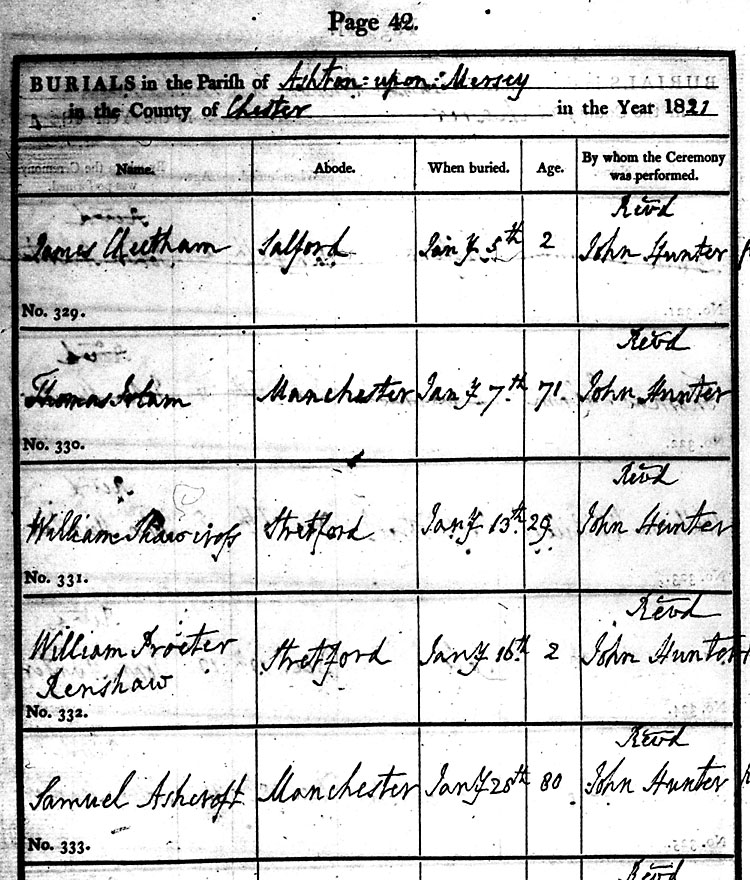 Page 42.
BURIALS in the Parish of Ashton-upon-Mersey
in the County of Chester in the Year 1821
Name. Abode. When buried. Age. By whom the Ceremony was performed.
Revd
James Cheetham Salford Jany 5th 2 John Hunter
No. 329.
Revd
Thomas Manchester Jany 7th 71. John Hunter
No. 330.
Revd
William Shawcross Stretford Jany 13th 29 John Hunter
No. 331.
Revd
William Procter Stretford Jany 16th 2 John Hunter
Renshaw
No. 332.
Revd
Samuel Ashcroft Manchester Jany 28th 80 John Hunter
No. 333.
Revd